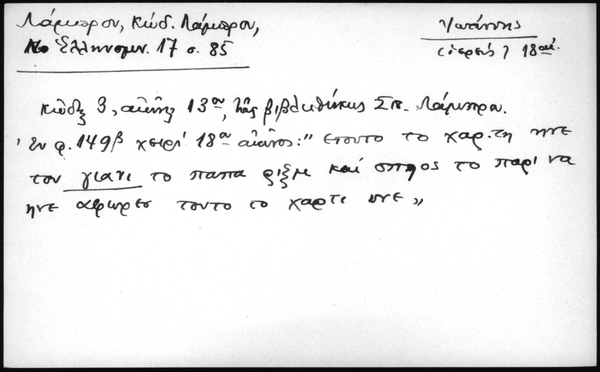 Λάμπρου, Κώδ. Λάμπρου,
Νέο Ἑλληνομν. 17 σ. 85
Ἰωάννης
(ἱερεύς) 18 αἰ.
Κῶδιξ 3, αἰῶνος 13ου, τῆς βιβλιοθήκης Σπ. Λάμπρου.
Ἐν φ. 149β χειρὶ 18ου αἰῶνος: "ετουτο το χαρτη ηνε
του γιανι το παπα και οπηος το παρι να
ηνε αφωρεσ τουτο το χαρτι υνε"